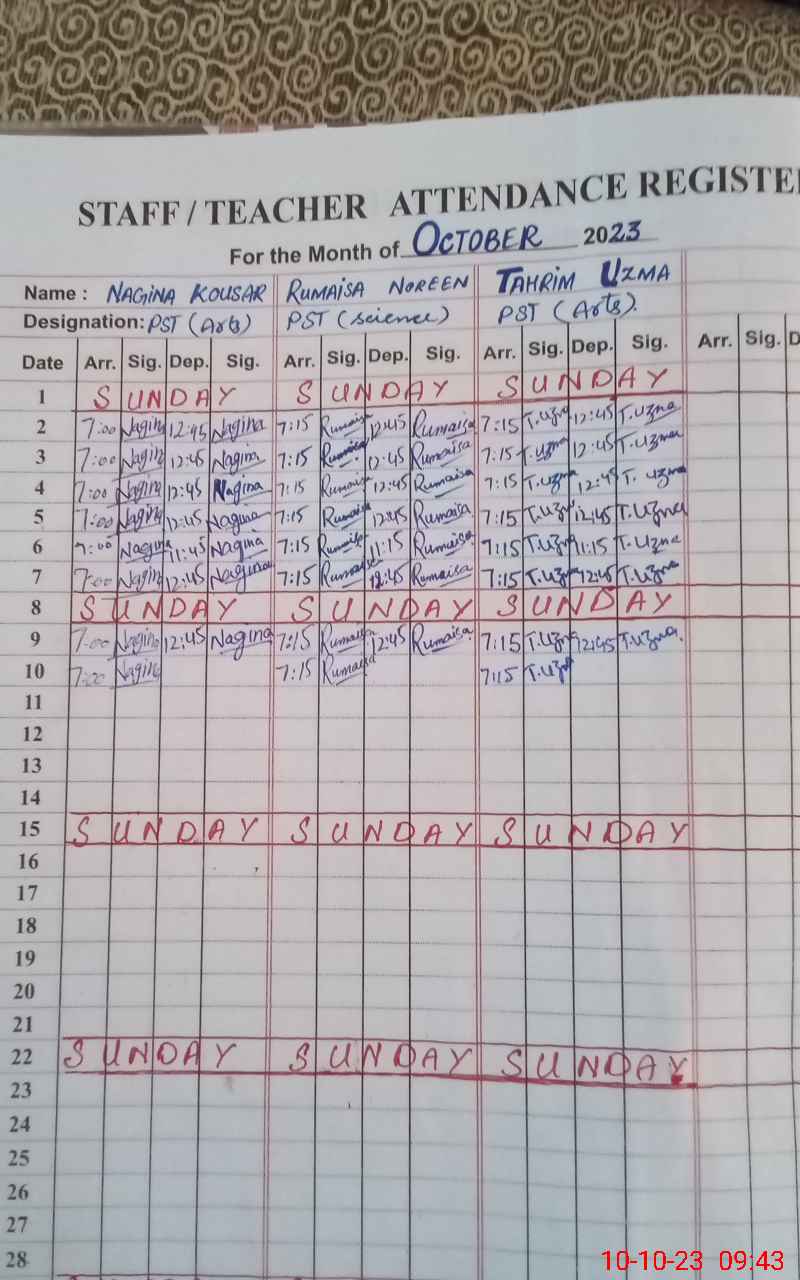 STAFF / TEACHER ATTENDANCE REGISTE
For the Month of OCTOBER 2023
Name : NAGINA KOUSAR RUMAISA NOREEN TAHRIM UZMA
Designation: PST (Arts) PST (science) PST (Arts).
Date Arr. Sig. Dep. Sig. Arr. Sig. Dep. Sig. Arr. Sig. Dep. Sig. Arr. Sig. D
1 SUNDAY SUNDAY SUNDAY
2 7:00 Nagina 12:45 Nagina 7:15 Rumaisa 12:45 Rumaisa 7:15 T.Uzma 12:45 T.Uzma
3 7:00 Nagina 12:45 Nagina 7:15 Rumaisa 12:45 Rumaisa 7:15 T.Uzma 12:45 T.Uzma
4 7:00 Nagina 12:45 Nagina 7:15 Rumaisa 12:45 Rumaisa 7:15 T.Uzma 12:45 T. Uzma
5 7:00 Nagina 12:45 Nagina 7:15 Rumaisa 12:45 Rumaisa 7:15 T.Uzma 12:45 T.Uzma
6 7:00 Nagina 11:45 Nagina 7:15 Rumaisa 11:15 Rumaisa 7:15 T.Uzma 11:15 T.Uzma
7 7:00 Nagina 12:45 Nagina 7:15 Rumaisa 12:45 Rumaisa 7:15 T.Uzma 12:45 T.Uzma
8 SUNDAY SUNDAY SUNDAY
9 7:00 Nagina 12:45 Nagina 7:15 Rumaisa 12:45 Rumaisa 7:15 T.Uzma 12:45 T.Uzma.
10 7:00 Nagina 7:15 Rumaisa 7:15 T.Uzma
11
12
13
14
15 SUNDAY SUNDAY SUNDAY
16
17
18
19
20
21
22 SUNDAY SUNDAY SUNDAY
23
24
25
26
27
28
10-10-23 09:43